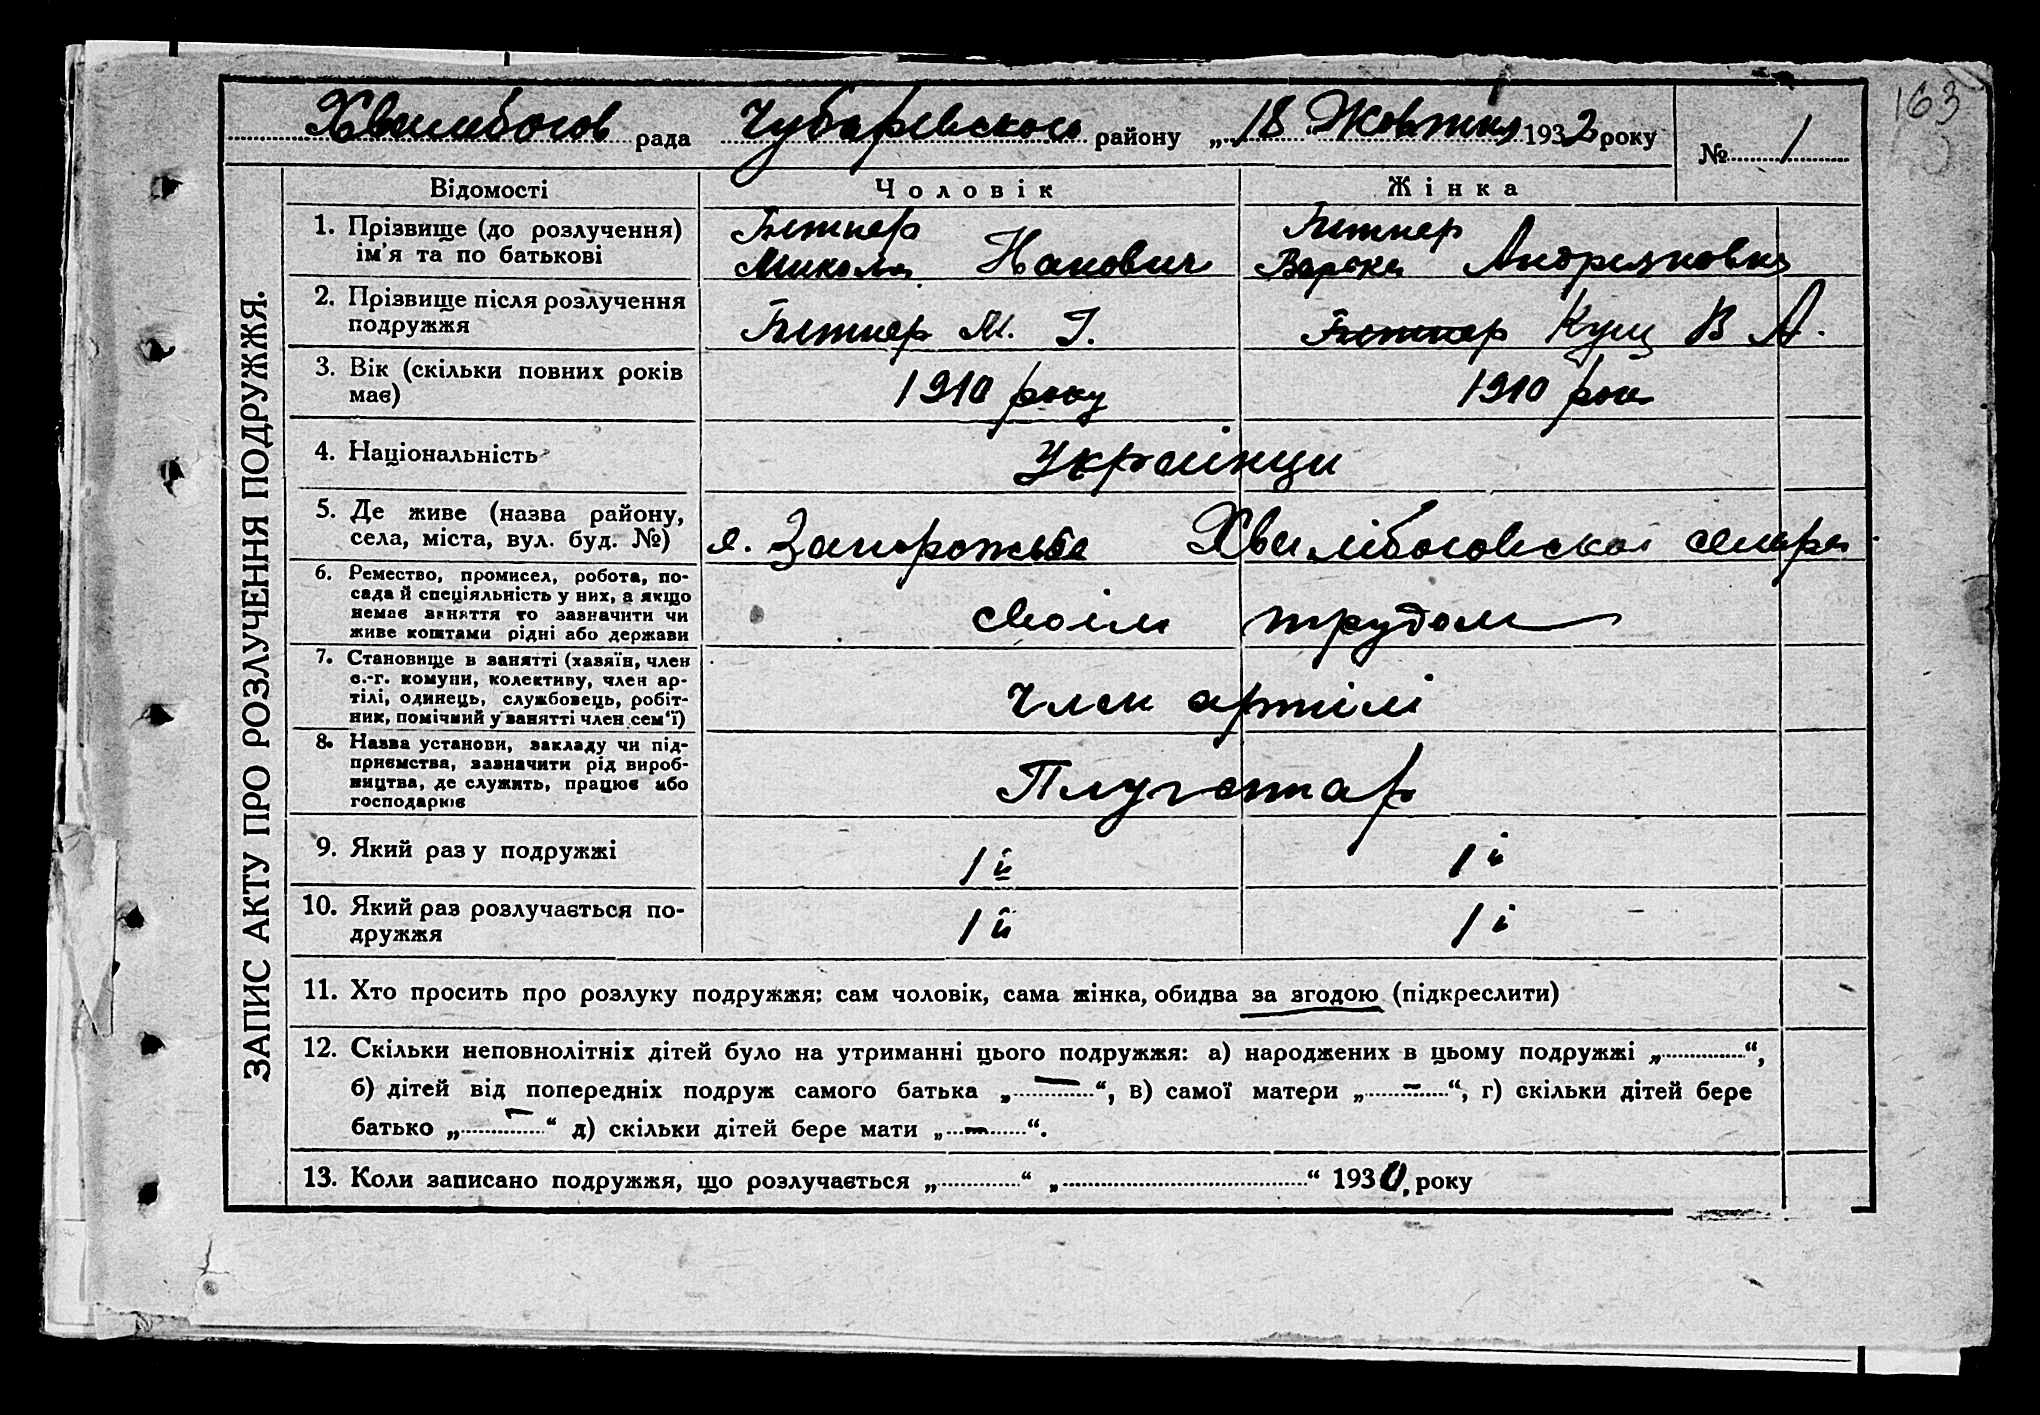 163
рада Чубарівського району „18 Жовтня 1932 року
№ 1
ЗАПИС АКТУ ПРО РОЗЛУЧЕННЯ ПОДРУЖЖЯ.
Відомості Чоловік Жінка
1. Прізвище (до розлучення)
ім'я та по батькові
Микола
2. Прізвище після розлучення
подружжя
М. І. Кущ В А.
3. Вік (скільки повних років
має)
1910 року 1910 рок
4. Національність
Українци
5. Де живе (назва району,
села, міста, вул. буд. №)
6. Ремество, промисел, робота, по-
сада й спеціяльність у них, а якщо
немає заняття то зазначити чи
живе коштами рідні або держави
своім трудом
7. Становище в занятті (хазяїн, член
с.-г. комуни, колективу, член ар-
тілі, одинець, службовець, робіт-
ник, помічний у занятті член сем'ї)
Член артілі
8. Назва установи, закладу чи під-
приємства, зазначити рід вироб-
ництва, де служить, працює або
господарює
Плугатар
9. Який раз у подружжі 1й 1й
10. Який раз розлучається по-
дружжя
1й 1і
11. Хто просить про розлуку подружжя: сам чоловік, сама жінка, обидва за згодою (підкреслити)
12. Скільки неповнолітніх дітей було на утриманні цього подружжя: а) народжених в цьому подружжі „..............“,
б) дітей від попередніх подруж самого батька „—“, в) самої матери „—“, г) скільки дітей бере
батько „—“ д) скільки дітей бере мати „—“.
13. Коли записано подружжя, що розлучається „............“ „....................................“ 1930 року